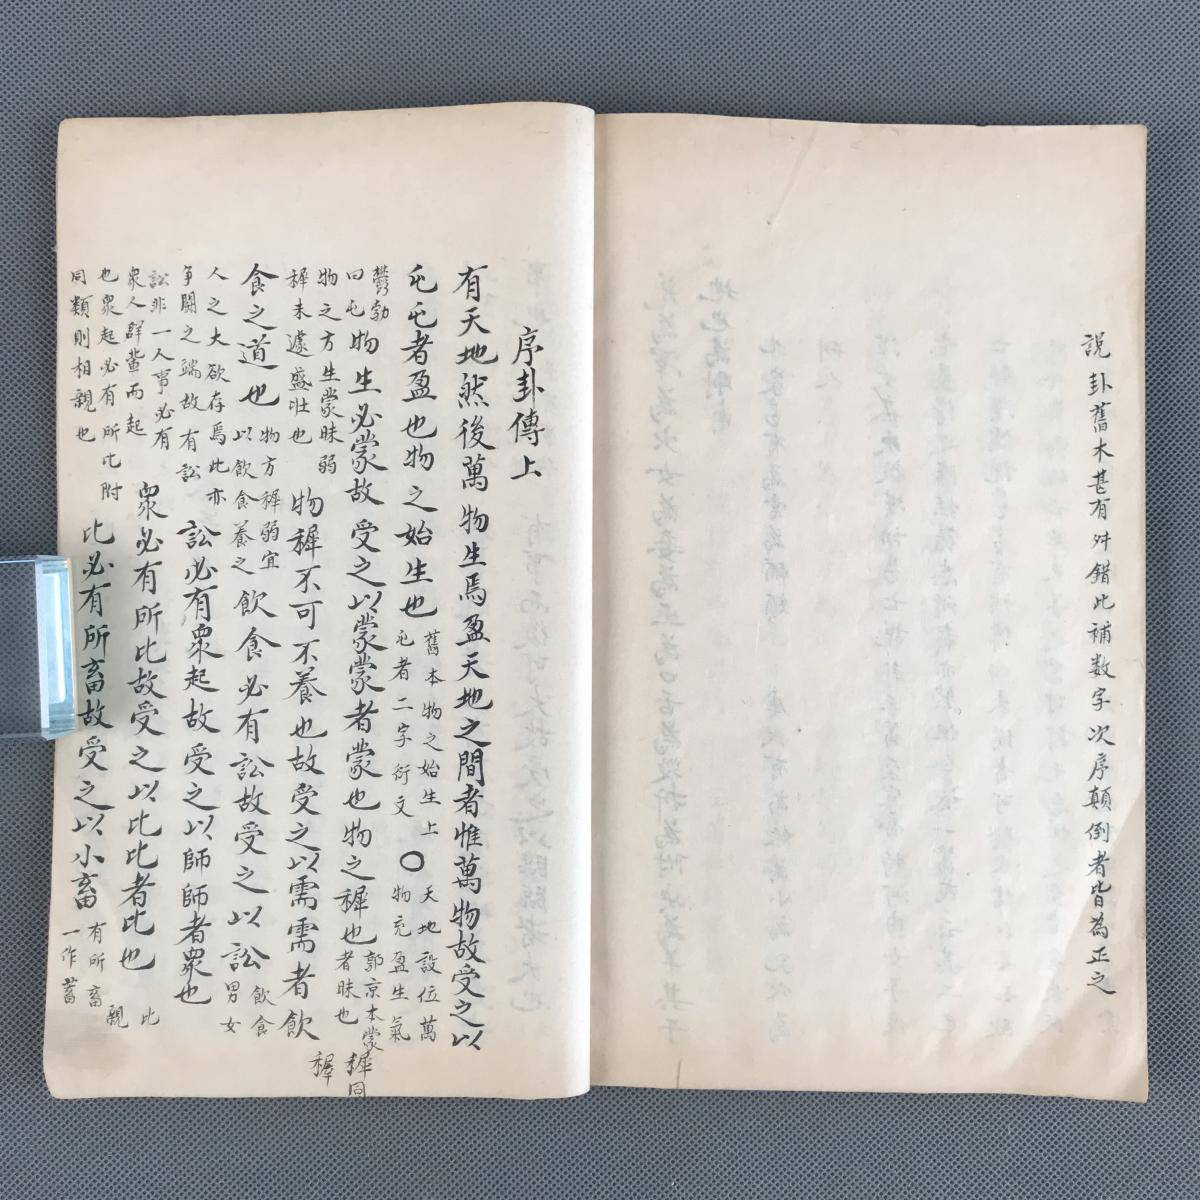 說卦舊本甚有舛錯此補數字次序顛倒者皆為正之
序卦傳上
有天地然後萬物生焉盈天地之間者惟萬物故受之以
屯屯者盈也物之始生也
舊本物之始生上
屯者二字衍文
〇
天地設位萬
物充盈生氣
鬱勃
曰屯
物生必蒙故受之以蒙蒙者蒙也物之穉也
郭京本蒙
者昧也
穉同
穉
物之方生蒙昧弱
穉未遽盛壯也
物穉不可不養也故受之以需需者飲
食之道也
物方穉弱宜
以飲食養之
飲食必有訟故受之以訟
飲食
男女
人之大欲存焉此亦
爭鬭之端故有訟
訟必有衆起故受之以師師者衆也
訟非一人事必有
衆人群黨而起
衆必有所比故受之以比比者比也
比
親
也衆起必有所比附
同類則相親也
比必有所畜故受之以小畜
有所畜
一作蓄